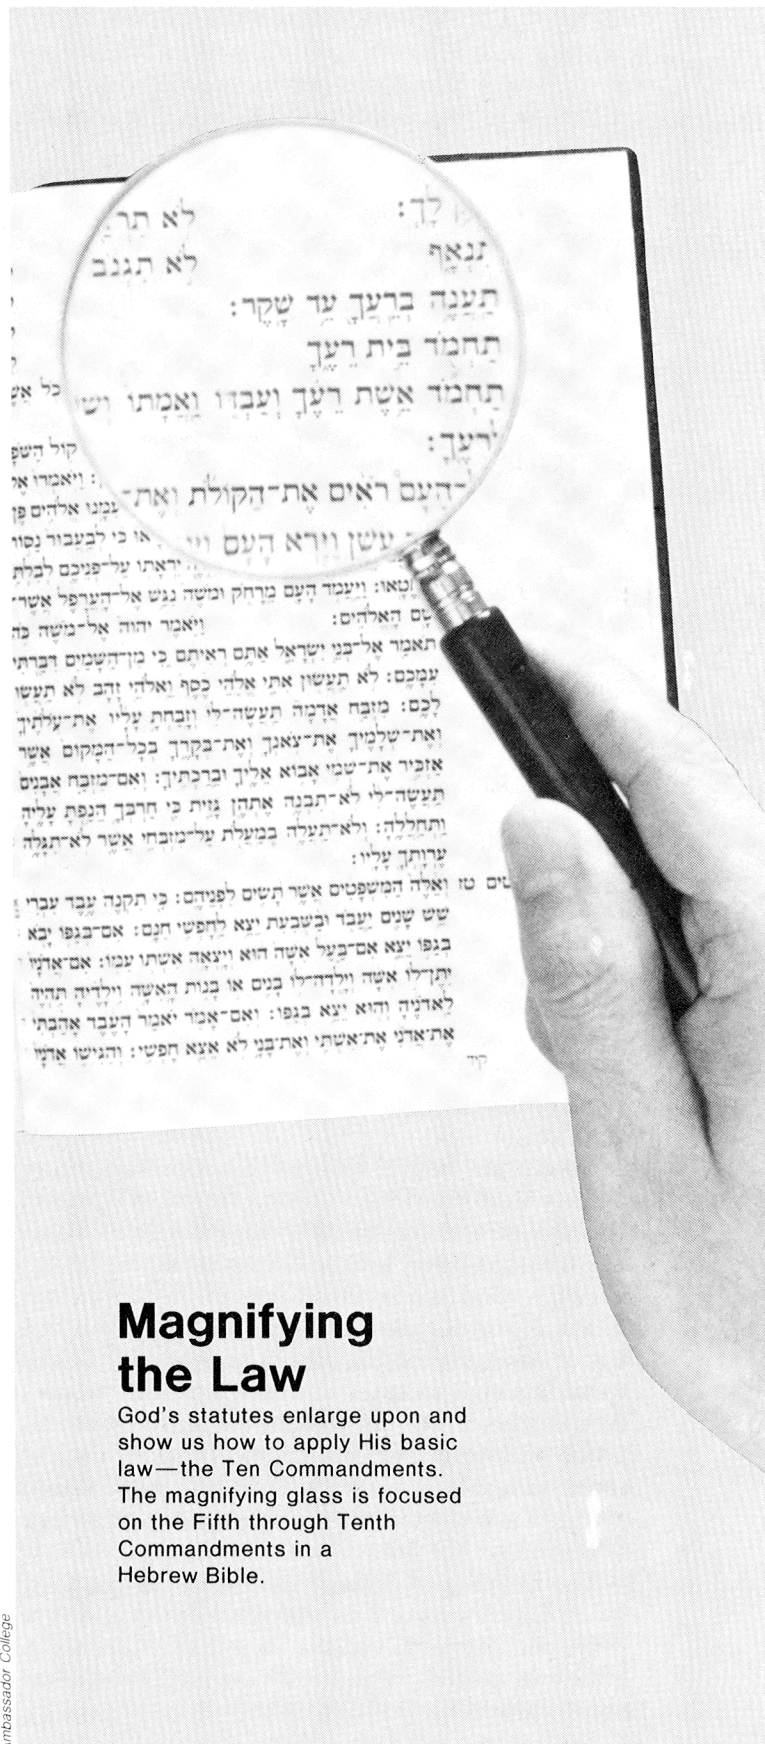 לָךְ:
לֹא
תִּנְאָף
לֹא תִּגְנֹב
תַעֲנֶה בְרֵעֲךָ עֵד שָׁקֶר:
תַחְמֹד בֵּית רֵעֶךָ
תַחְמֹד אֵשֶׁת רֵעֶךָ וְעַבְדּוֹ וַאֲמָתוֹ
לְרֵעֶךָ:
כל
הָעָם רֹאִים אֶת־הַקּוֹלֹת וְאֶת־
קול
וַיֹּאמְרוּ
עָשֵׁן וַיַּרְא הָעָם
עִמָּנוּ אֱלֹהִים פֶּן
כִּי לְבַעֲבוּר נַסּוֹת
יִרְאָתוֹ עַל־פְּנֵיכֶם לְבִלְתִּי
וַיַּעֲמֹד הָעָם מֵרָחֹק וּמֹשֶׁה נִגַּשׁ אֶל־הָעֲרָפֶל אֲשֶׁר־
שָׁם הָאֱלֹהִים: וַיֹּאמֶר יהוה אֶל־מֹשֶׁה כֹּה
תֹאמַר אֶל־בְּנֵי יִשְׂרָאֵל אַתֶּם רְאִיתֶם כִּי מִן־הַשָּׁמַיִם דִּבַּרְתִּי
עִמָּכֶם: לֹא תַעֲשׂוּן אִתִּי אֱלֹהֵי כֶסֶף וֵאלֹהֵי זָהָב לֹא תַעֲשׂוּ
לָכֶם: מִזְבַּח אֲדָמָה תַּעֲשֶׂה־לִּי וְזָבַחְתָּ עָלָיו אֶת־עֹלֹתֶיךָ
וְאֶת־שְׁלָמֶיךָ אֶת־צֹאנְךָ וְאֶת־בְּקָרֶךָ בְּכָל־הַמָּקוֹם אֲשֶׁר
אַזְכִּיר אֶת־שְׁמִי אָבוֹא אֵלֶיךָ וּבֵרַכְתִּיךָ: וְאִם־מִזְבַּח אֲבָנִים
תַּעֲשֶׂה־לִּי לֹא־תִבְנֶה אֶתְהֶן גָּזִית כִּי חַרְבְּךָ הֵנַפְתָּ עָלֶיהָ
וַתְּחַלְלֶהָ: וְלֹא־תַעֲלֶה בְמַעֲלֹת עַל־מִזְבְּחִי אֲשֶׁר לֹא־תִגָּלֶה
עֶרְוָתְךָ עָלָיו:
טז וְאֵלֶּה הַמִּשְׁפָּטִים אֲשֶׁר תָּשִׂים לִפְנֵיהֶם: כִּי תִקְנֶה עֶבֶד עִבְרִי
שֵׁשׁ שָׁנִים יַעֲבֹד וּבַשְּׁבִעִת יֵצֵא לַחָפְשִׁי חִנָּם: אִם־בְּגַפּוֹ יָבֹא
בְּגַפּוֹ יֵצֵא אִם־בַּעַל אִשָּׁה הוּא וְיָצְאָה אִשְׁתּוֹ עִמּוֹ: אִם־אֲדֹנָיו
יִתֶּן־לוֹ אִשָּׁה וְיָלְדָה־לוֹ בָנִים אוֹ בָנוֹת הָאִשָּׁה וִילָדֶיהָ תִּהְיֶה
לַאדֹנֶיהָ וְהוּא יֵצֵא בְגַפּוֹ: וְאִם־אָמֹר יֹאמַר הָעֶבֶד אָהַבְתִּי
אֶת־אֲדֹנִי אֶת־אִשְׁתִּי וְאֶת־בָּנָי לֹא אֵצֵא חָפְשִׁי: וְהִגִּישׁוֹ אֲדֹנָיו
קיד
Magnifying
the Law
God's statutes enlarge upon and
show us how to apply His basic
law—the Ten Commandments.
The magnifying glass is focused
on the Fifth through Tenth
Commandments in a
Hebrew Bible.
Ambassador College